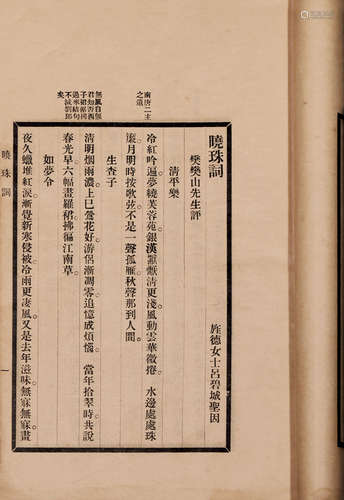 曉珠詞
樊樊山先生評 旌德女士呂碧城聖因
清平樂
冷紅吟遍。夢繞芙蓉苑。銀漢懨懨清更淺。風動雲華微捲。 水邊處處珠
簾。月明時按歌弦。不是一聲孤雁。秋聲那到人間。
南唐二主
之遺
生查子
清明烟雨濃。上巳鶯花好。游侶漸凋零。追憶成煩惱。 當年拾翠時。共說
春光早。六幅畫羅裙。拂徧江南草。
無風自偃
君知否西
子裙裾拂
過來結句
不減劉郎
矣
如夢令
夜久蠟堆紅淚。漸覺新寒侵被。冷雨更淒風。又是去年滋味。無寐。無寐。畫
曉珠詞
一